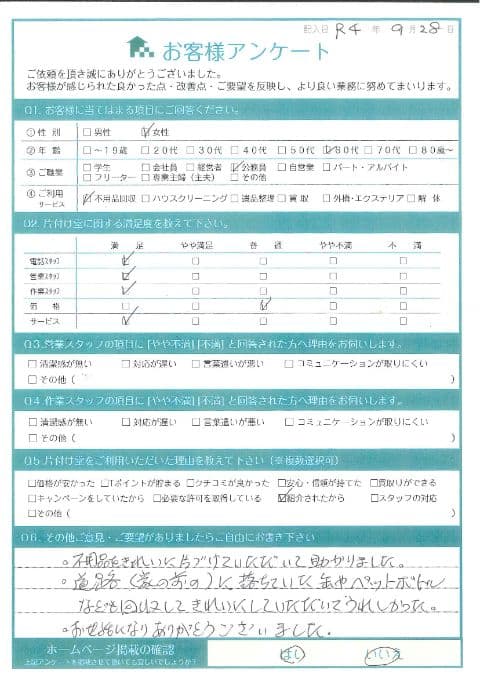 記入日 R4 年 9 月 28 日
お客様アンケート
ご依頼を頂き誠にありがとうございました。
お客様が感じられた良かった点・改善点・ご要望を反映し、より良い業務に努めてまいります。
Q1. お客様に当てはまる項目にご回答ください。
①性 別 □男性 ☑女性
②年 齢 □~19歳 □20代 □30代 □40代 □50代 ☑60代 □70代 □80歳~
③ご職業 □学生 □会社員 □経営者 ☑公務員 □自営業 □パート・アルバイト
□フリーター □専業主婦(主夫) □その他
④ご利用サービス ☑不用品回収 □ハウスクリーニング □遺品整理 □買取 □外構・エクステリア □解体
Q2. 片付け堂に関する満足度を教えて下さい。
満 足 やや満足 普 通 やや不満 不 満
電話スタッフ ☑ □ □ □ □
営業スタッフ ☑ □ □ □ □
作業スタッフ ☑ □ □ □ □
価 格 □ □ ☑ □ □
サービス ☑ □ □ □ □
Q3.営業スタッフの項目に[やや不満][不満]と回答された方へ理由をお伺いします。
□清潔感が無い □対応が遅い □言葉遣いが悪い □コミュニケーションが取りにくい
□その他( )
Q4.作業スタッフの項目に[やや不満][不満]と回答された方へ理由をお伺いします。
□清潔感が無い □対応が遅い □言葉遣いが悪い □コミュニケーションが取りにくい
□その他( )
Q5.片付け堂をご利用いただいた理由を教えて下さい(※複数選択可)
□価格が安かった □Tポイントが貯まる □クチコミが良かった □安心・信頼が持てた □買取りができる
□キャンペーンをしていたから □必要な許可を取得している ☑紹介されたから □スタッフの対応
□その他( )
Q6.その他ご意見・ご要望がありましたらご自由にお書き下さい
。不用品をきれいに片づけていただいて助かりました。
。道路(家の前の)に落ちていた缶やペットボトル
なども回収してきれいにしていただいてうれしかった。
。お世話になりありがとうございました。
ホームページ掲載の確認 はい いいえ
上記アンケートを掲載させて頂いても宜しいでしょうか?